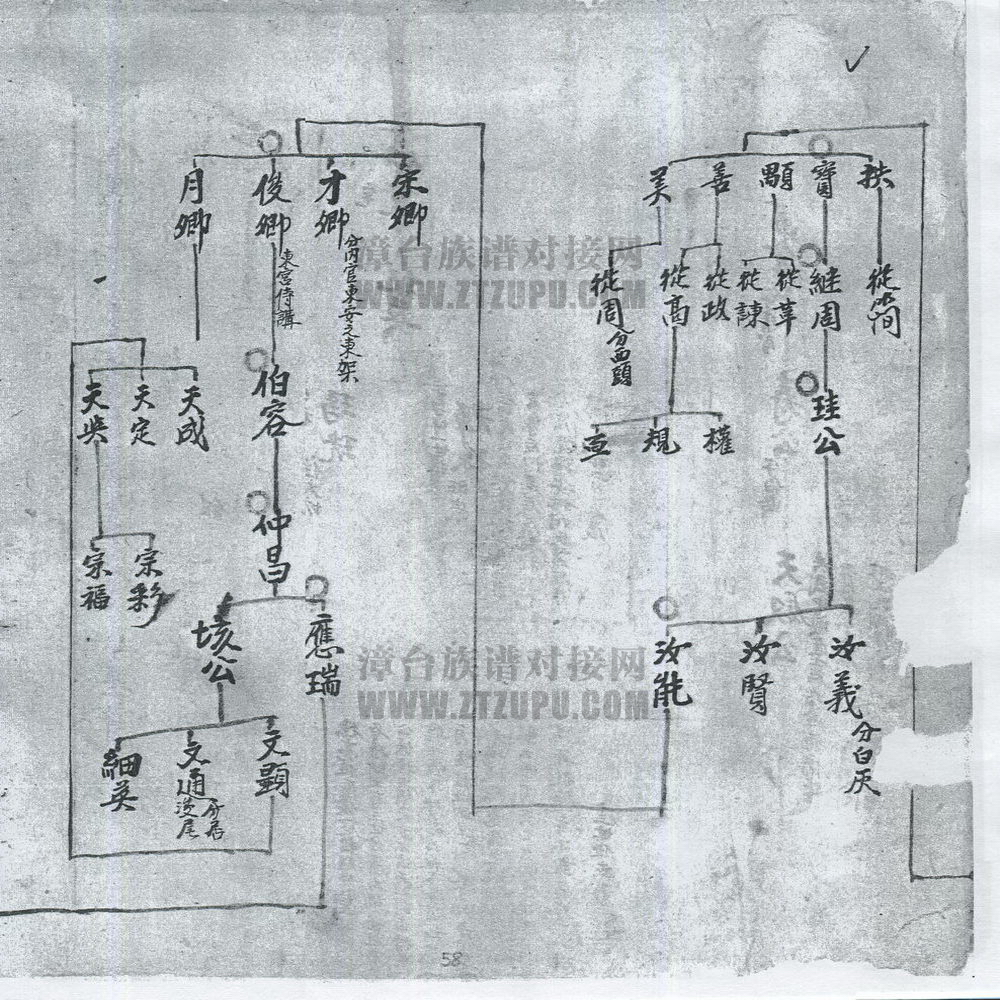 秩
寶
顯
善
美
從簡
継周
從革
從諫
從政
從高
從周
分西頭
珪公
權
規
亙
汝義
分白灰
汝賢
汝能
宗卿
才卿
分內官東安之東架
俊卿
東宮侍講
月卿
伯容
仲昌
應瑞
垓公
文顯
文通
分居
漫尾
細英
天成
天定
天與
宗彩
宗福
漳台族谱对接网
WWW.ZTZUPU.COM
漳台族谱对接网
WWW.ZTZUPU.COM
58